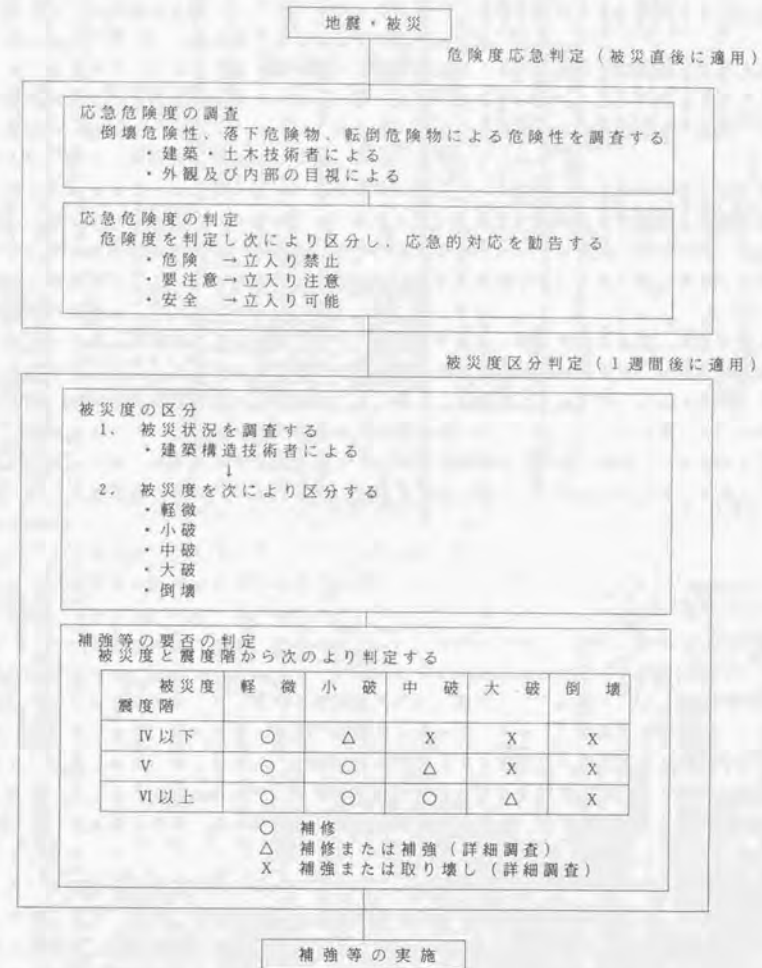 地震・被災
危険度応急判定（被災直後に適用）
応急危険度の調査
倒壊危険性、落下危険物、転倒危険物による危険性を調査する
・建築・土木技術者による
・外観及び内部の目視による
応急危険度の判定
危険度を判定し次により区分し、応急的対応を勧告する
・危険　→立入り禁止
・要注意→立入り注意
・安全　→立入り可能
被災度区分判定（1週間後に適用）
被災度の区分
1．　被災状況を調査する
・建築構造技術者による
↓
2．　被災度を次により区分する
・軽微
・小破
・中破
・大破
・倒壊
補強等の要否の判定
被災度と震度階から次のより判定する
被災度　軽　微　小　破　中　破　大　破　倒　壊
震度階
Ⅳ以下　○　△　X　X　X
Ⅴ　○　○　△　X　X
Ⅵ以上　○　○　○　△　X
○　補修
△　補修または補強（詳細調査）
X　補強または取り壊し（詳細調査）
補強等の実施